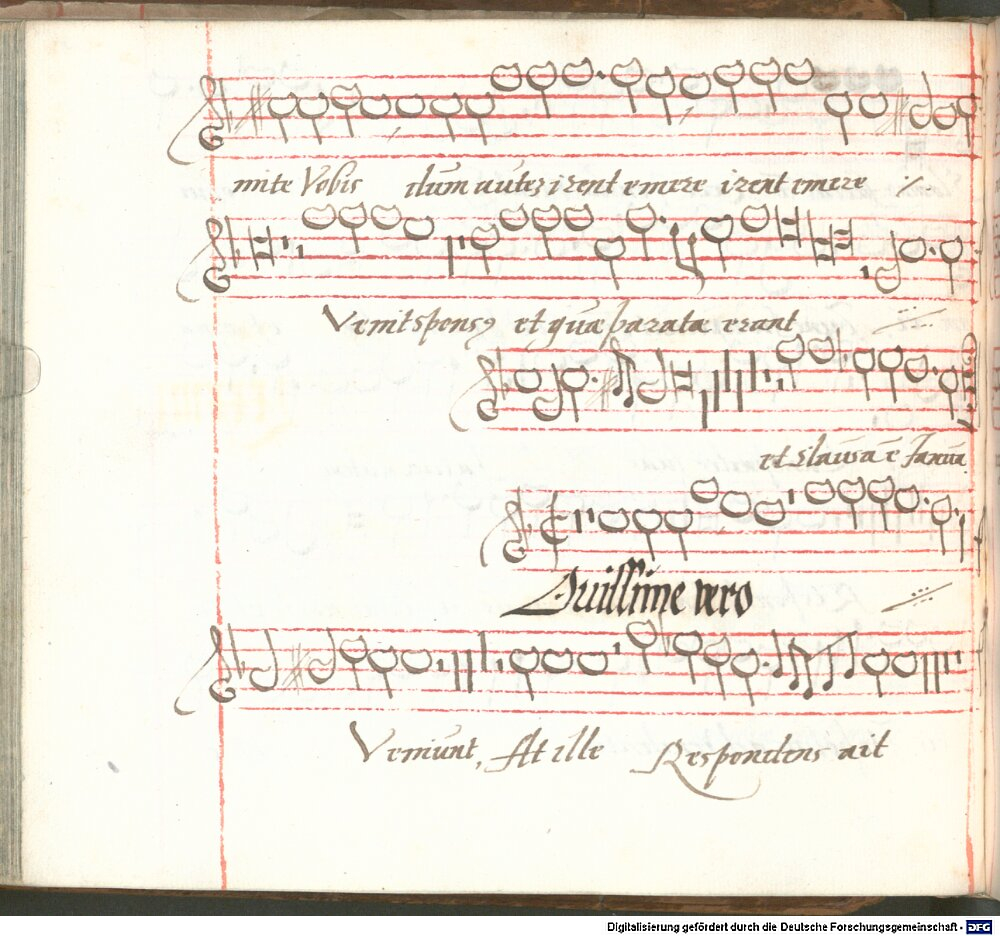 mite Vobis dum autez irent emere irent emere
Venit sponsꝯ et quæ parata erant
et clausa ē Janua
Quissime vero
Veniunt, At ille Respondens ait
Digitalisierung gefördert durch die Deutsche Forschungsgemeinschaft - DFG